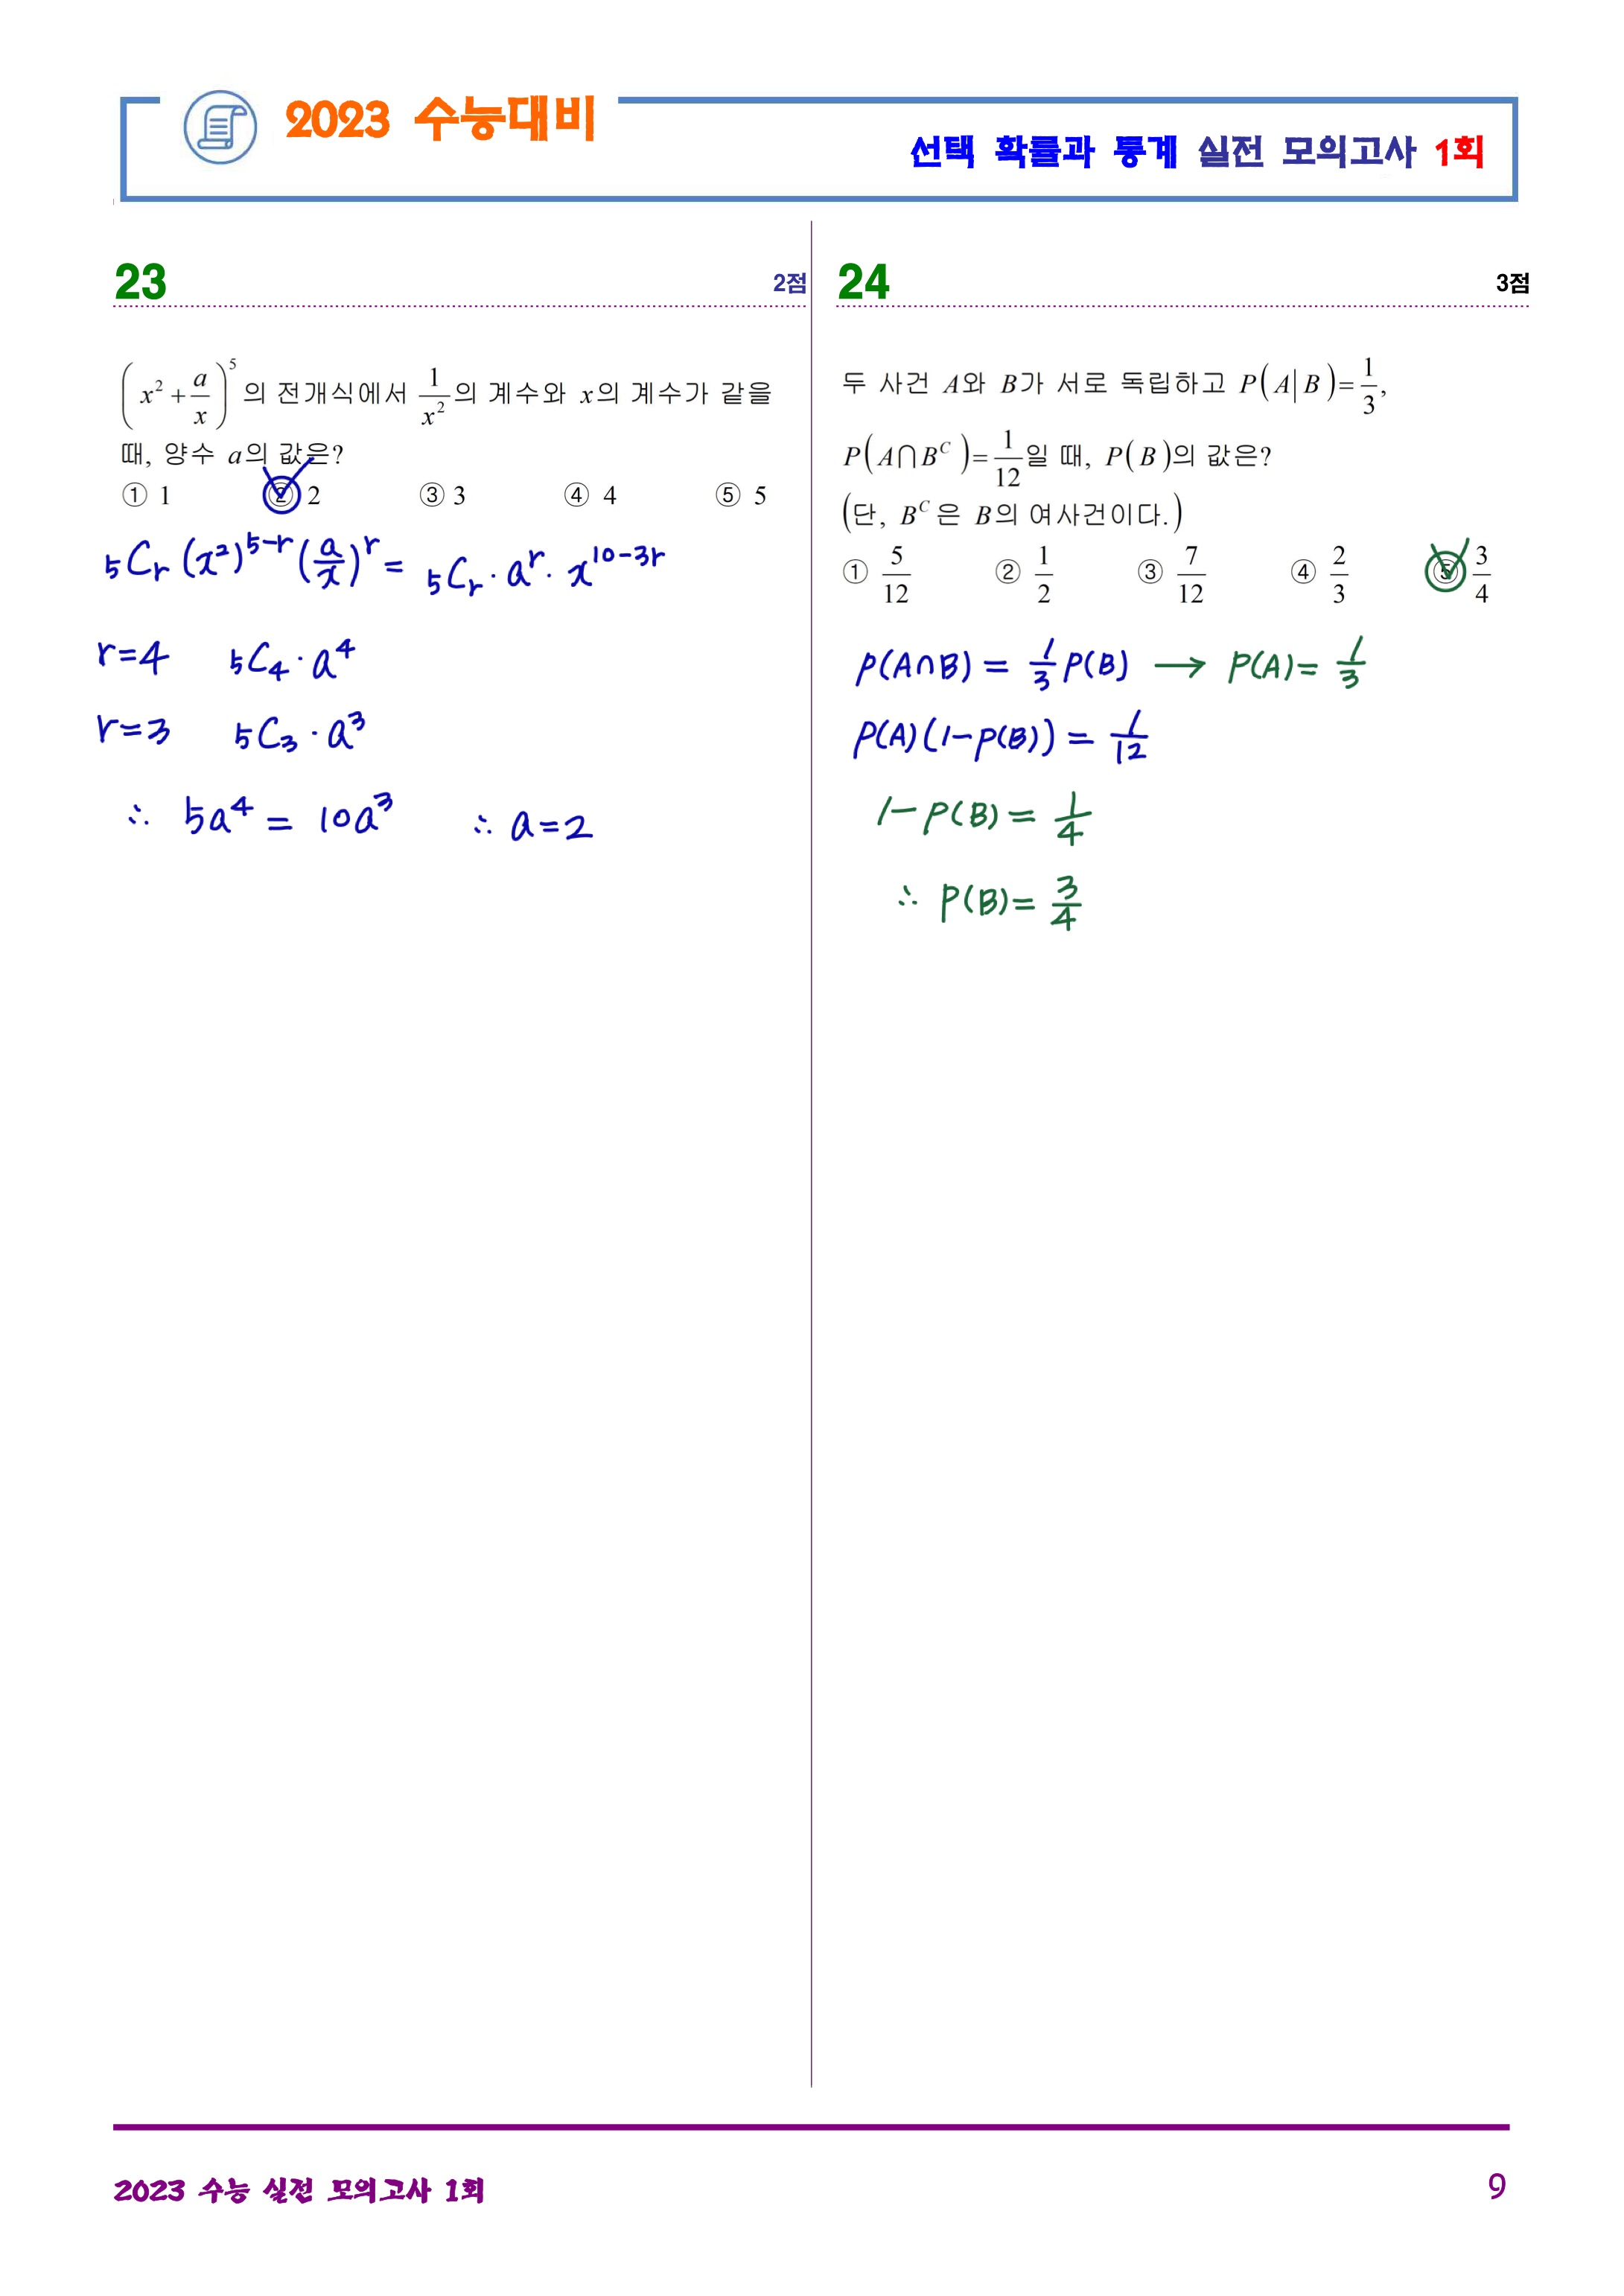 2023 수능대비
선택 확률과 통계 실전 모의고사 1회
23 2점
(x² + a/x)⁵의 전개식에서 1/x²의 계수와 x의 계수가 같을
때, 양수 a의 값은?
① 1 ② 2 ③ 3 ④ 4 ⑤ 5
₅Cᵣ (x²)⁵⁻ʳ (a/x)ʳ = ₅Cᵣ · aʳ · x¹⁰⁻³ʳ
r=4 ₅C₄ · a⁴
r=3 ₅C₃ · a³
∴ 5a⁴ = 10a³ ∴ a=2
24 3점
두 사건 A와 B가 서로 독립하고 P(A|B)=1/3,
P(A∩Bᶜ)=1/12일 때, P(B)의 값은?
(단, Bᶜ은 B의 여사건이다.)
① 5/12 ② 1/2 ③ 7/12 ④ 2/3 ⑤ 3/4
P(A∩B) = 1/3 P(B) → P(A)= 1/3
P(A)(1-P(B)) = 1/12
1-P(B) = 1/4
∴ P(B)= 3/4
2023 수능 실전 모의고사 1회 9